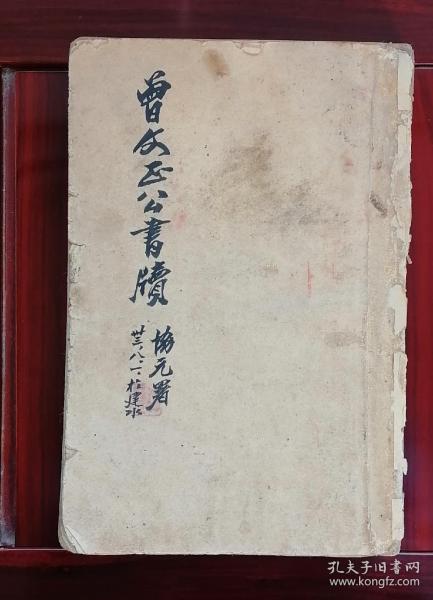 曾文正公書牘
協元署
卅三、八、一、於建水
孔夫子旧书网
www.kongfz.com